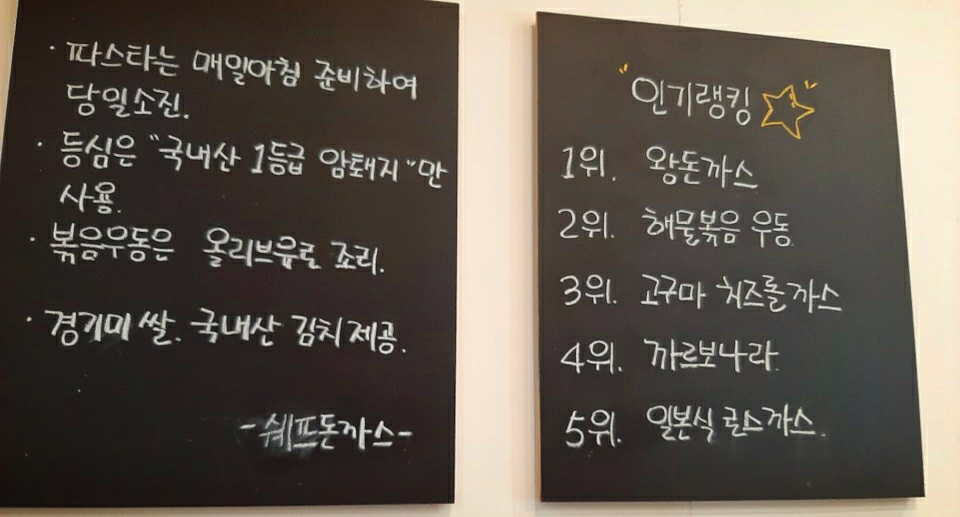 · 파스타는 매일아침 준비하여
당일소진.
· 등심은 "국내산 1등급 암퇘지"만
사용.
· 볶음우동은 올리브유로 조리.
· 경기미쌀. 국내산 김치제공.
-쉐프돈까스-
"인기랭킹"
1위. 왕돈까스
2위. 해물볶음 우동
3위. 고구마 치즈롤까스
4위. 까르보나라
5위. 일본식 로스까스.